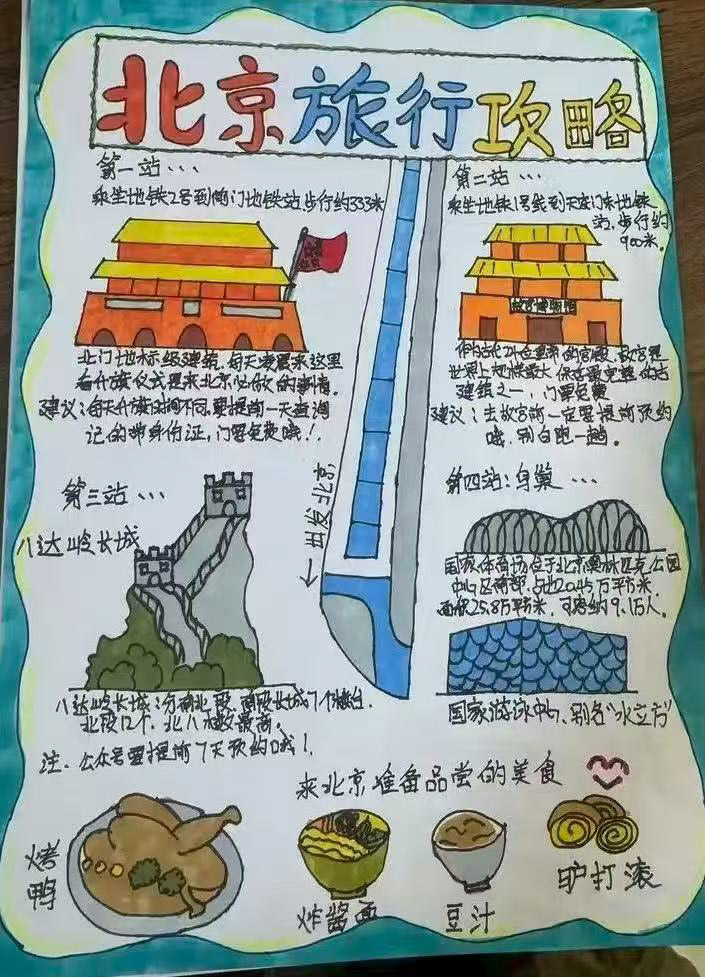 北京旅行攻略
第一站…
乘坐地铁2号到前门地铁站,步行约333米
北门地标级建筑,每天凌晨来这里
看升旗仪式是来北京必做的事情。
建议:每天升旗时间不同,要提前一天查询
记的带身份证,门票免费哦!
第二站…
乘坐地铁1号线到天安门东地铁
站,步行约
900米。
故宫博物馆
作为古代24位皇帝的宫殿,故宫是
世界上规模最大,保存最完整的古
建筑之一,门票免费
建议:去故宫前一定要提前预约
哦,别白跑一趟。
出发北京
第三站…
八达岭长城
八达岭长城:分南北段,南段长城7个敌台,
北段12个,北八楼最高。
注:公众号要提前7天预约哦!
第四站:鸟巢…
国家体育场位于北京奥林匹克公园
中心区南部,占地20.45万平方米,
面积25.8万平方米,可容纳9.1万人。
国家游泳中心,别名"水立方"
来北京准备品尝的美食
烤鸭
炸酱面
豆汁
驴打滚